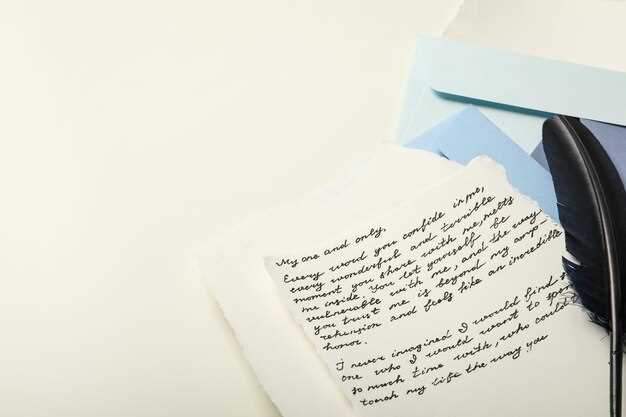 My one and only,
Every word you confide in me,
every wonderful and terrible
moment you share with me, melts
me inside. You let yourself be
vulnerable with me, and the way
you trust me is beyond my comp-
rehension and feels like an incredible
honor.
I never imagined I would find
one who I would want to spend
so much time with, who could
touch my life the way you